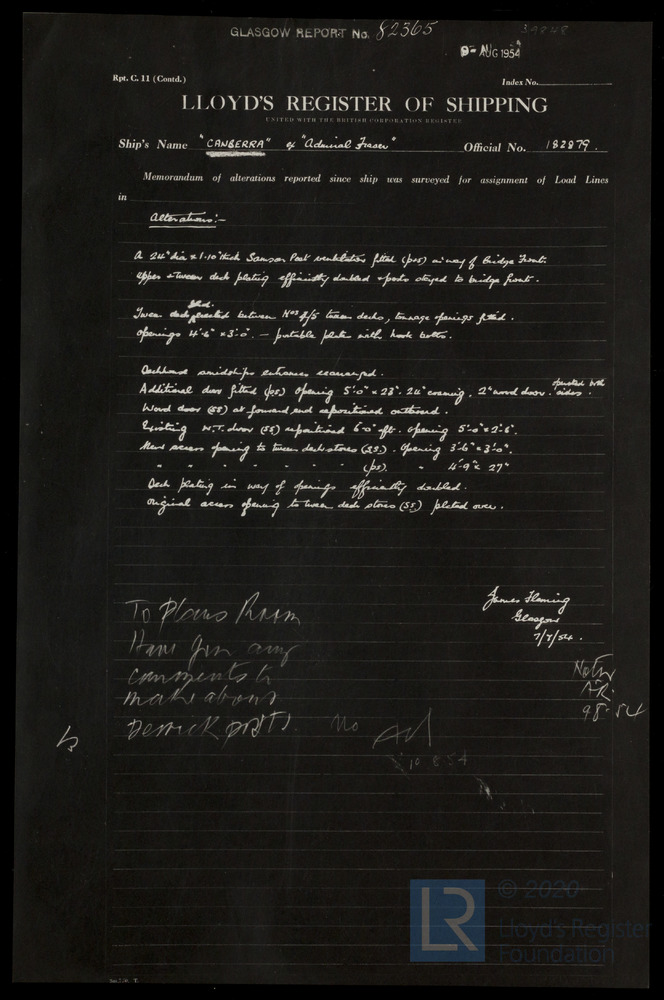 GLASGOW REPORT No. 82365
39848
9 - AUG 1954
Rpt. C. 11 (Contd.)
Index No.
LLOYD'S REGISTER OF SHIPPING
UNITED WITH THE BRITISH CORPORATION REGISTER
Ship's Name "CANBERRA" ex "Admiral Fraser" Official No. 182879.
Memorandum of alterations reported since ship was surveyed for assignment of Load Lines
in
Alterations:-
A 24" dia x 1·10" thick Samson Post ventilators fitted (p&s) in way of Bridge Front.
Upper & tween deck plating efficiently doubled & posts stayed to bridge front.
Bhd.
Tween deck erected between Nos 4/5 tween decks, tonnage openings fitted.
Openings 4'-6" x 3'-0". - portable plates with hook bolts.
Deckhouse amidships entrances rearranged.
operated both
Additional door fitted (ps) opening 5'0" x 28". 24" coaming, 2" wood door. sides.
Wood door (ss) at forward end repositioned outboard.
Existing W.T. door (ss) repositioned 6'-0" aft. opening 5'-0" x 2'-6".
New access opening to tween deck stores (ss). Opening 3'-6" x 3'-0".
" " " " " " " (ps) " 4'-9" x 27"
Deck plating in way of openings efficiently doubled.
Original access opening to tween deck stores (ss) plated over.
James Fleming
Glasgow
7/7/54.
To Plans Room
Have you any
comments to
make about
Derrick posts. No
10 8 54
Noted
AR.
9 8 - 54
© 2020
LR
Lloyd's Register
Foundation